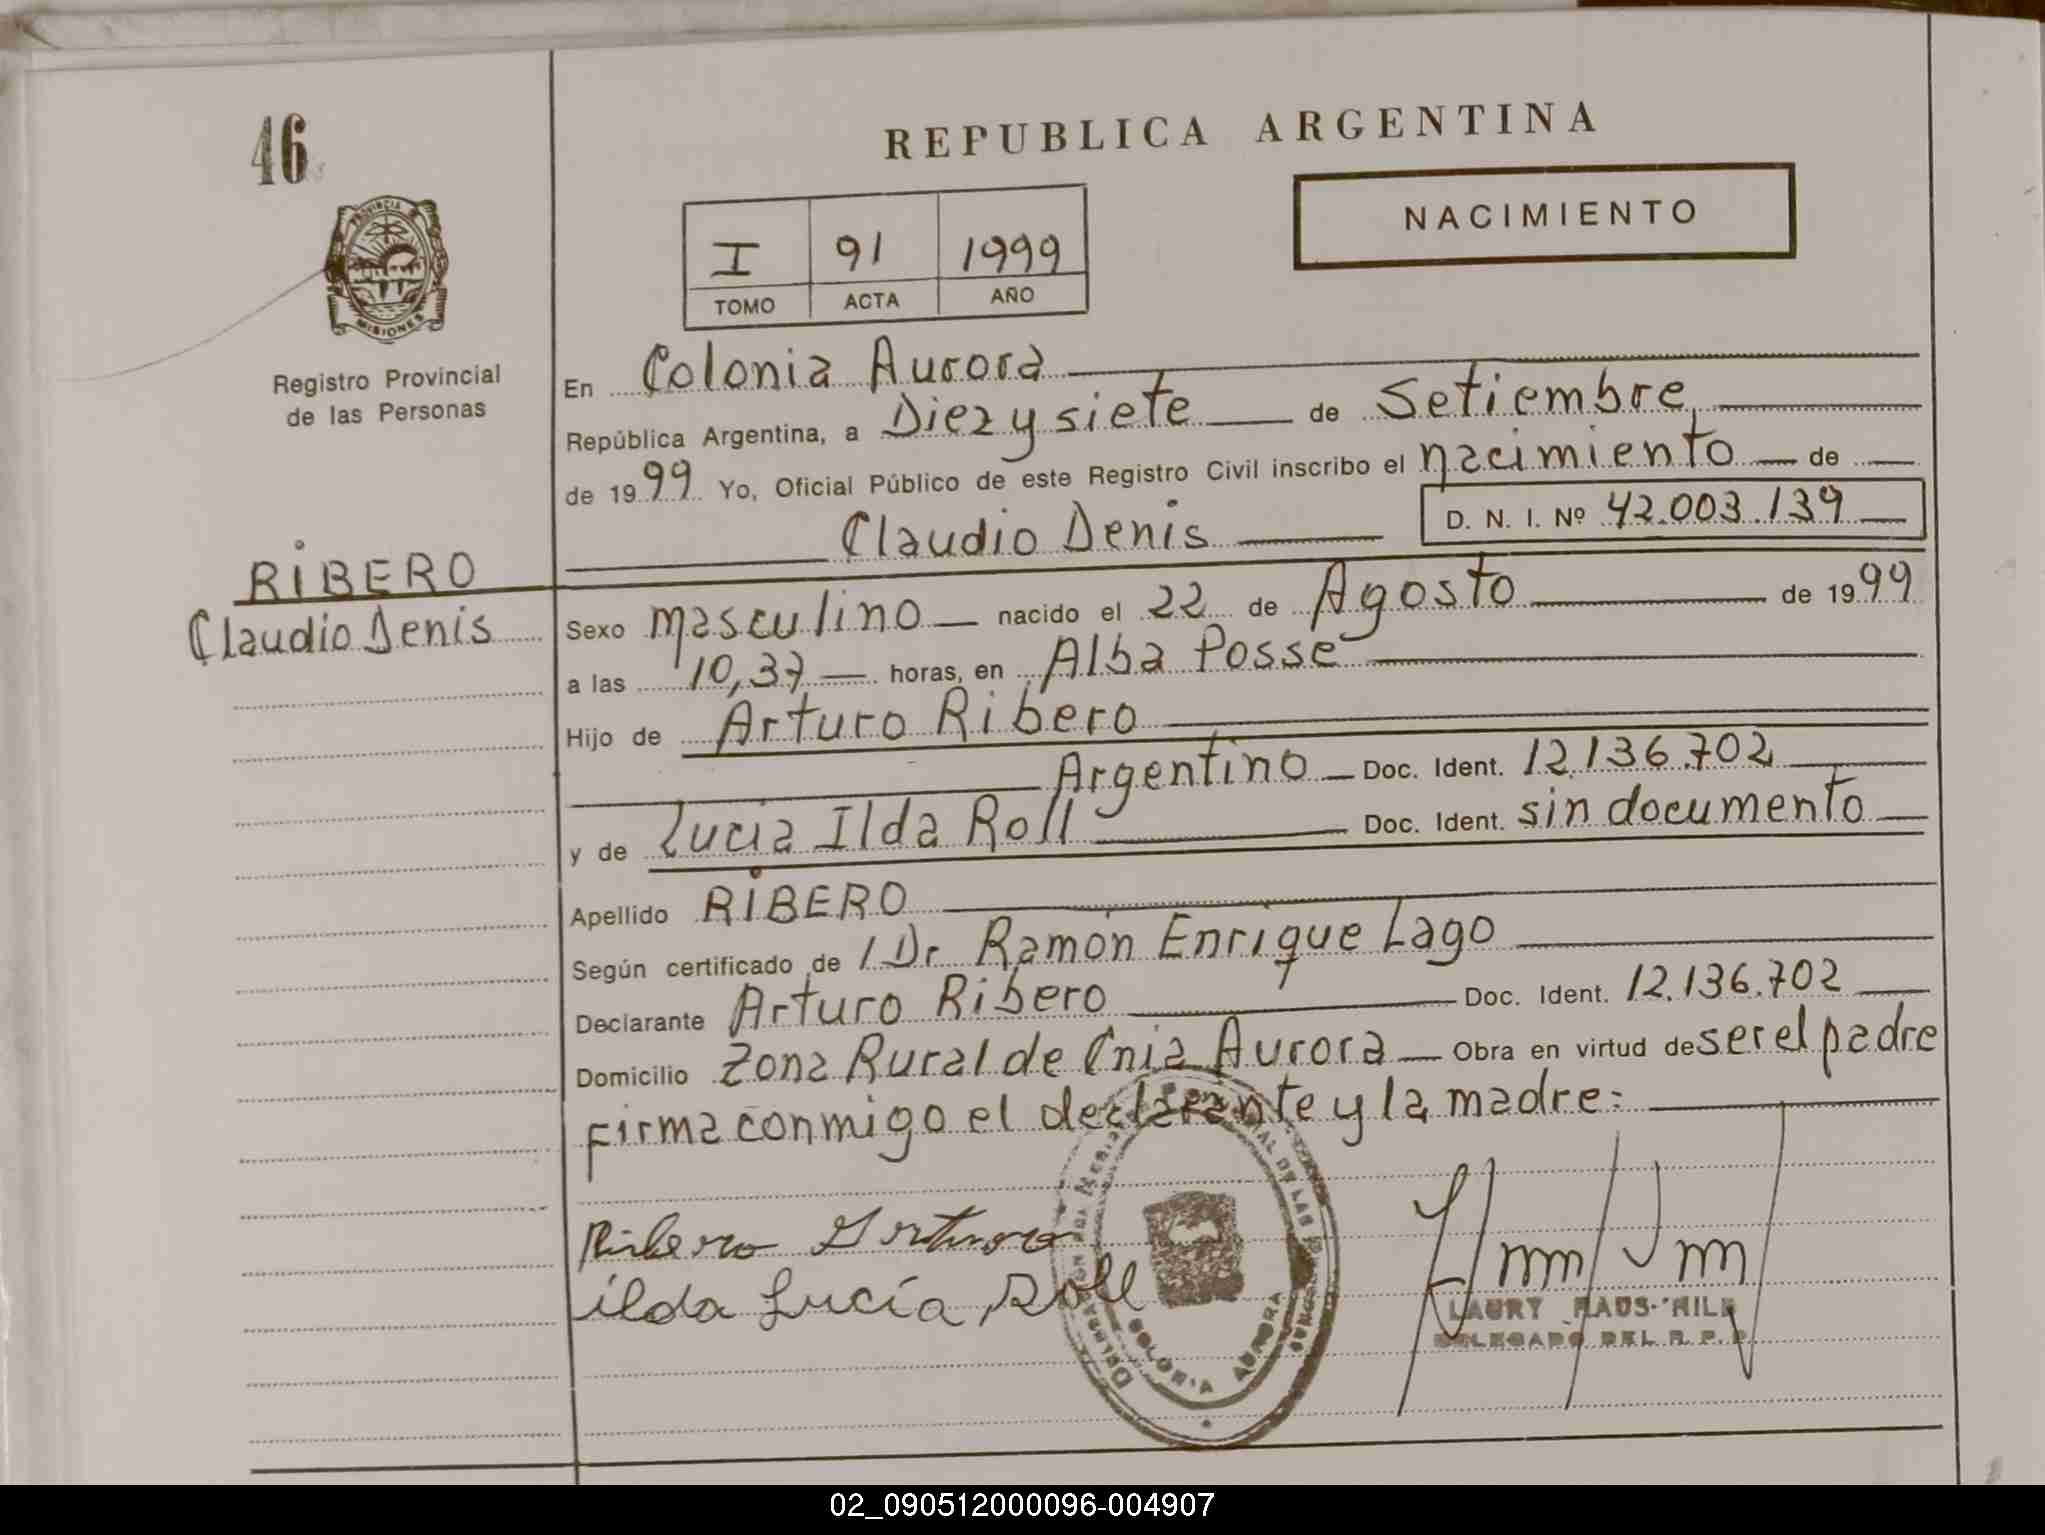 46
REPUBLICA ARGENTINA
NACIMIENTO
I 91 1999
TOMO ACTA AÑO
PROVINCIA
MISIONES
Registro Provincial
de las Personas
En Colonia Aurora
República Argentina, a Diez y siete de Setiembre
de 1999 Yo, Oficial Público de este Registro Civil inscribo el nacimiento de
Claudio Denis D. N. I. Nº 42.003.139
RIBERO
Claudio Denis
Sexo masculino nacido el 22 de Agosto de 1999
a las 10,37 horas, en Alba Posse
Hijo de Arturo Ribero
Argentino Doc. Ident. 12.136.702
y de Lucia Ilda Roll Doc. Ident. sin documento
Apellido RIBERO
Según certificado de / Dr Ramón Enrique Lago
Declarante Arturo Ribero Doc. Ident. 12.136.702
Domicilio Zona Rural de Cnia Aurora Obra en virtud de ser el padre
firma conmigo el declarante y la madre:
Ribero Arturo
ilda Lucía Roll
COLONIA AURORA
LAURY
DELEGADO DEL R. P. P.
02_090512000096-004907